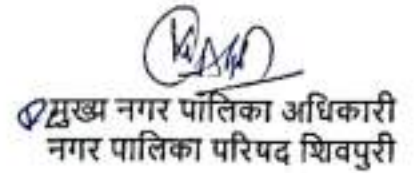 मुख्य नगर पालिका अधिकारी
नगर पालिका परिषद शिवपुरी